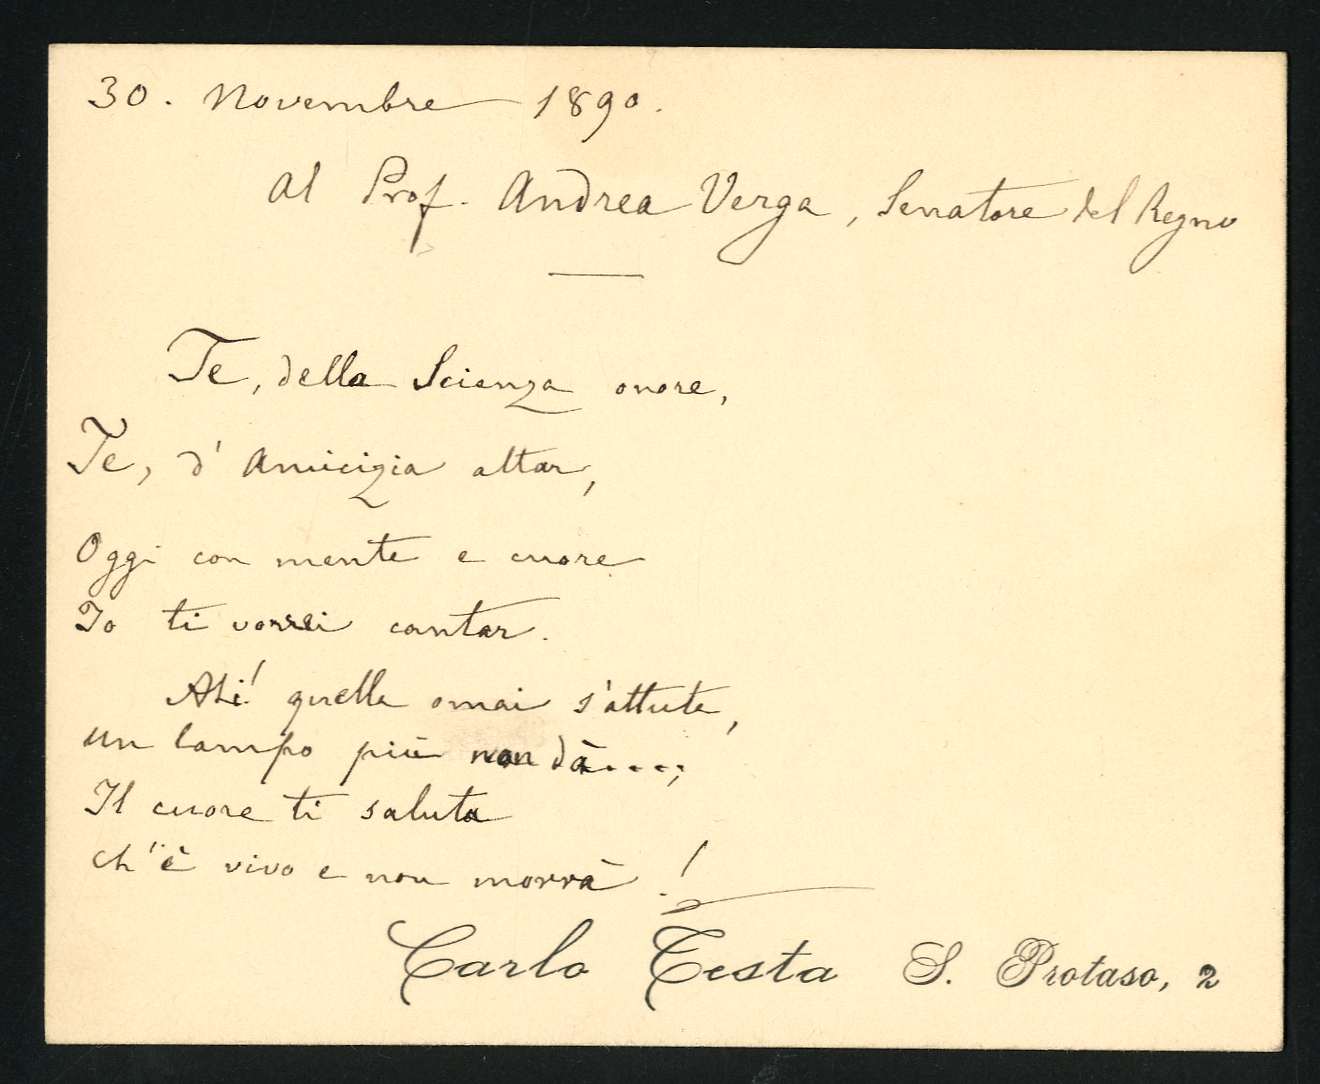 30. Novembre 1890.
Al Prof. Andrea Verga, Senatore del Regno
Te, della Scienza onore,
Te, d'Amicizia altar,
Oggi con mente e cuore
Io ti vorrei cantar.
Ahi! quella omai s'attuta,
un lampo più non dà....;
Il cuore ti saluta
ch'è vivo e non morrà!
Carlo Testa S. Protaso, 2